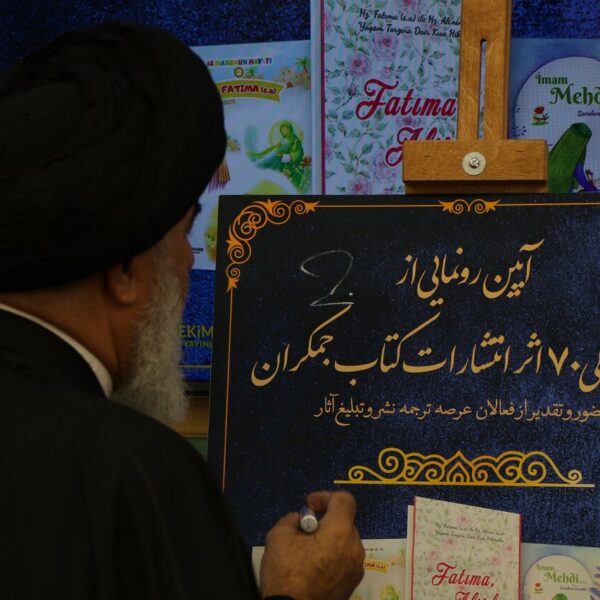 MASUMUN HAYATI
FATIMA (s.a)
Hz. Fatıma (s.a) ile Hz. Ali'nin
Yaşam Tarzına Dair Kısa Hik
Fatıma
Ali
İmam
Mehdi
EKİM
YAYIN
آیین رونمایی از
۷۰ اثر انتشارات کتاب جمکران
حضور و تقدیر از فعالان عرصه ترجمه نشر و تبلیغ آثار
Hz. Fatıma (s.a) ile Hz. Ali'nin
Yaşam Tarzına Dair Kısa Hikayeler
Fatıma,
Ali
İmam
Mehdi